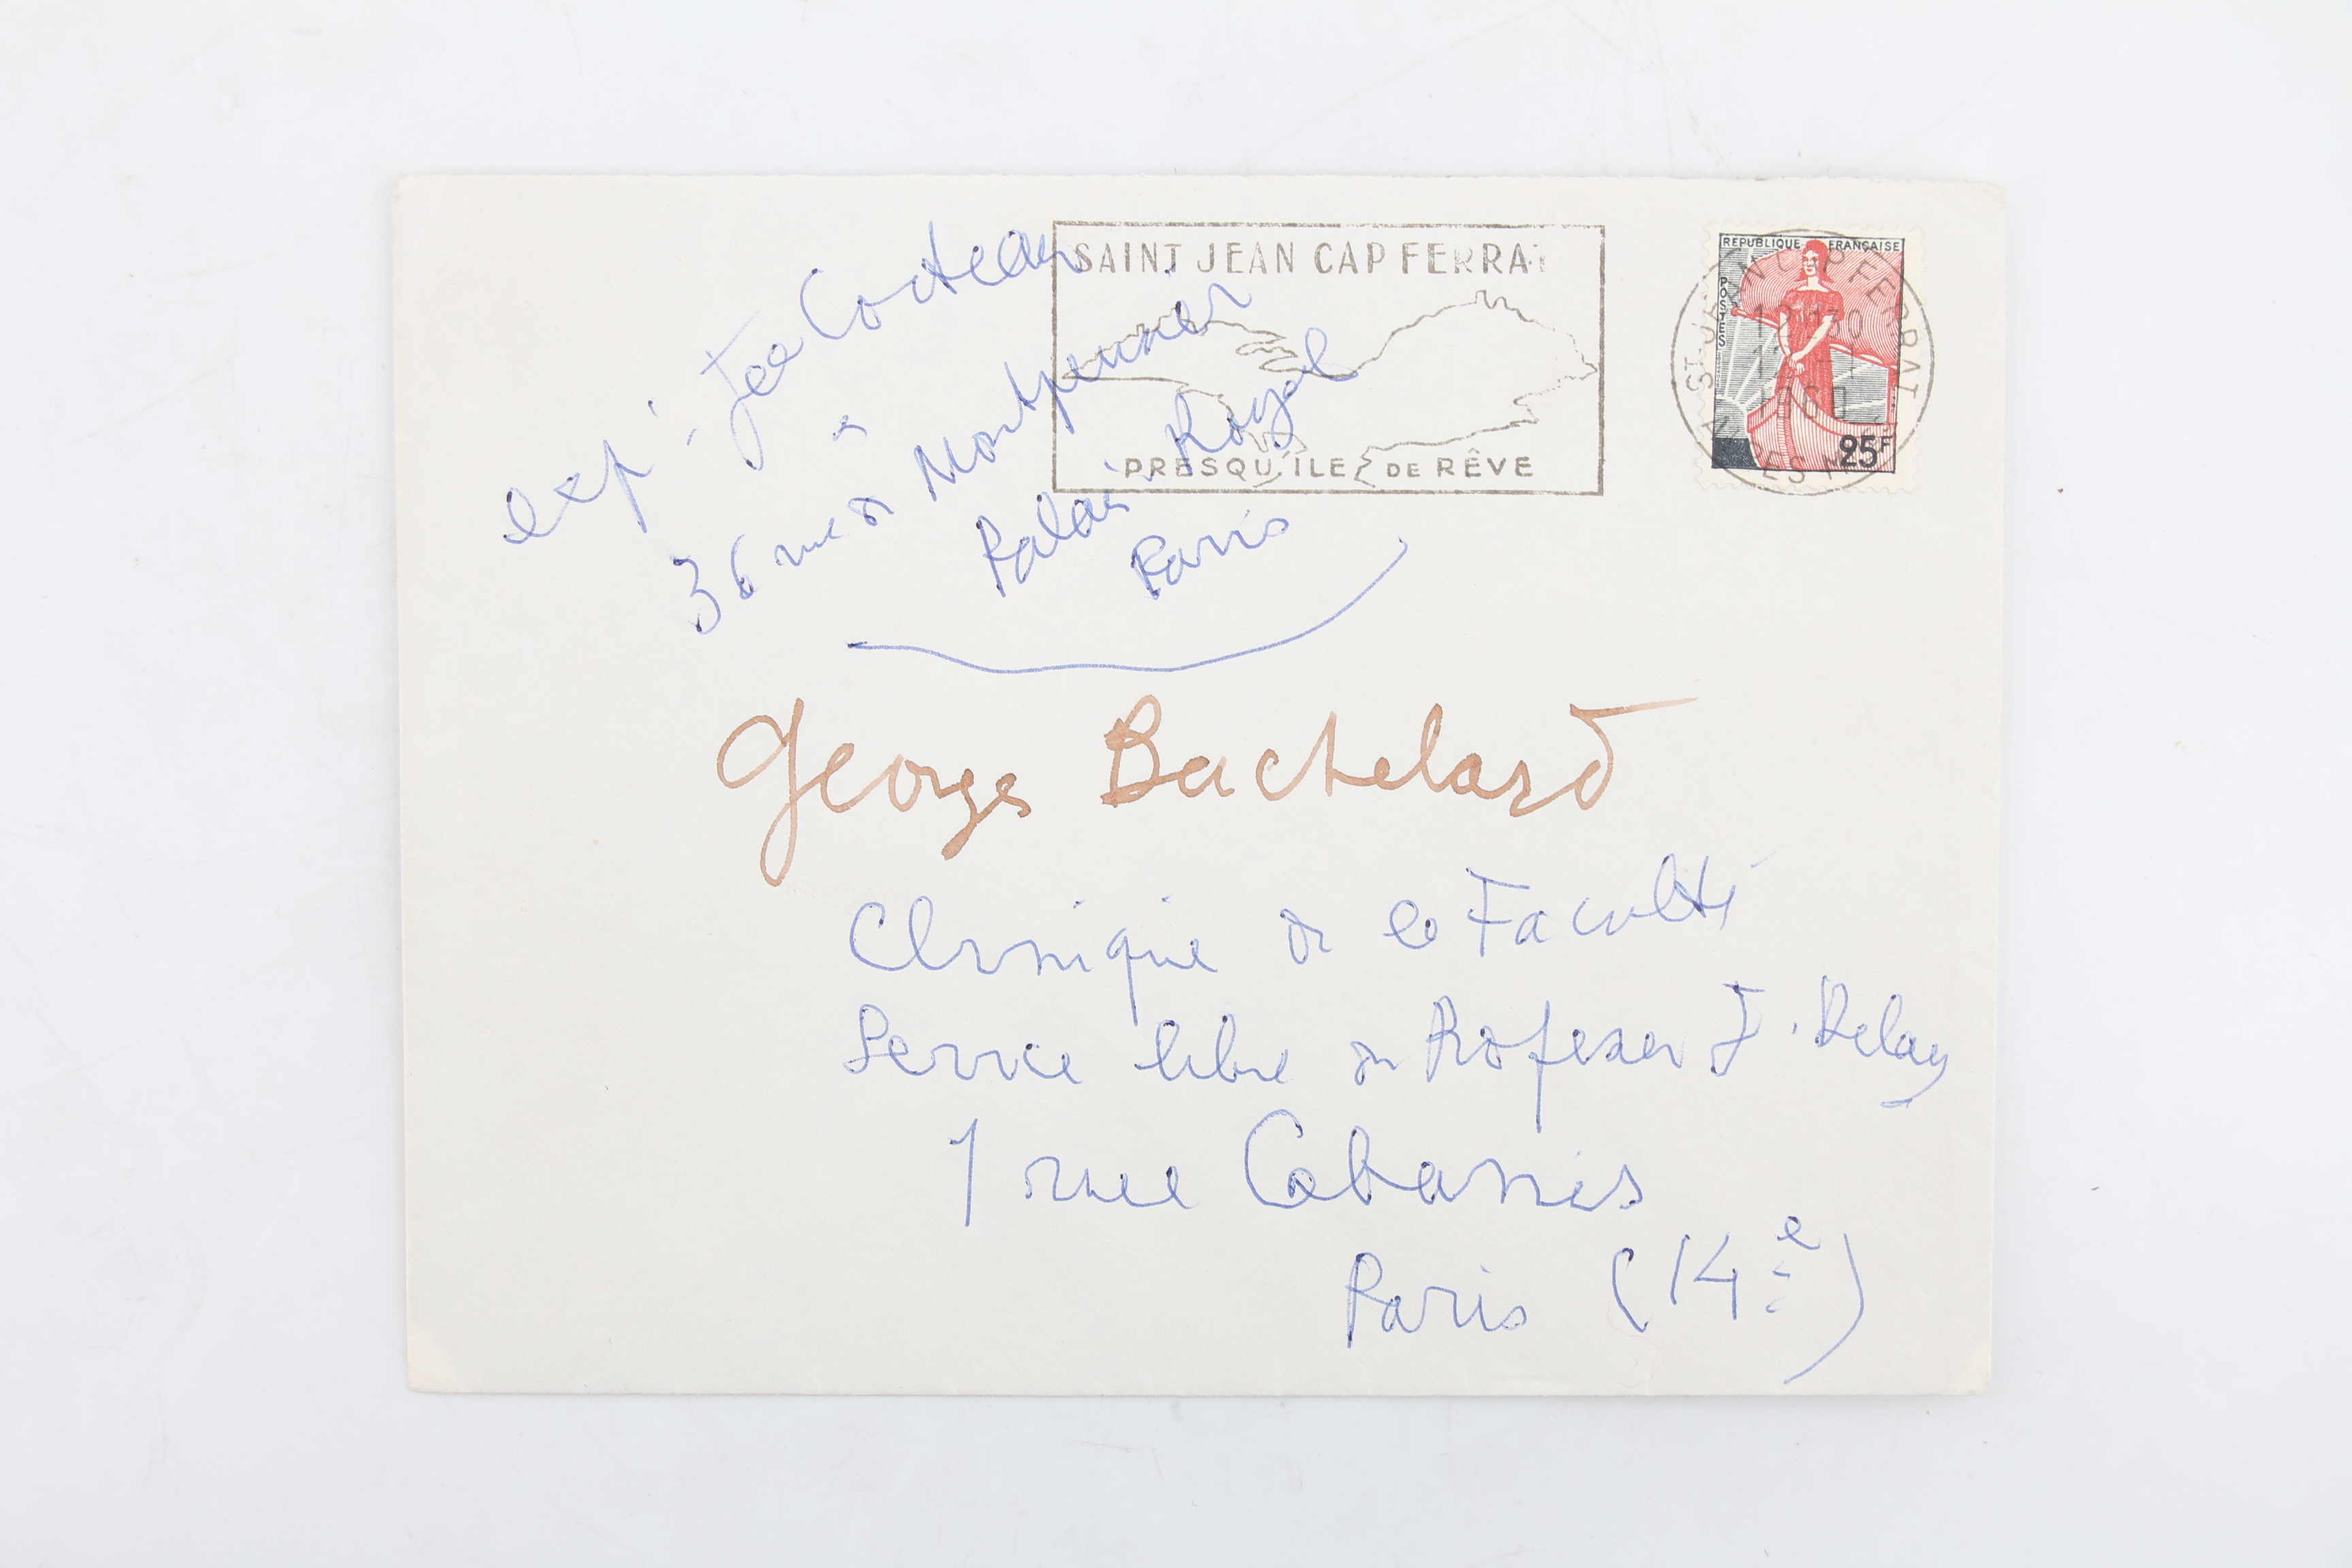 expr : Jean Cocteau
36 rue de Montpensier
Palais Royal
Paris
SAINT JEAN CAP FERRAT
PRESQU'ILE DE RÊVE
REPUBLIQUE FRANÇAISE
POSTES
25F
ST JEAN CAP FERRAT
12H30
1960
Georges Bachelard
Clinique de la Faculté
Service libre du Professeur J. Delay
1 rue Cabanis
Paris (14e)